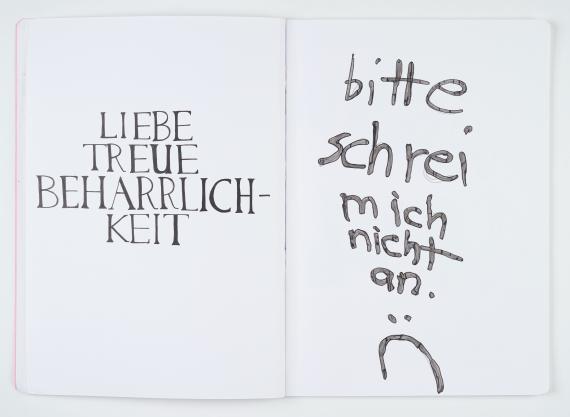 LIEBE
TREUE
BEHARRLICH-
KEIT
bitte
schrei
mich
nicht
an.
:(